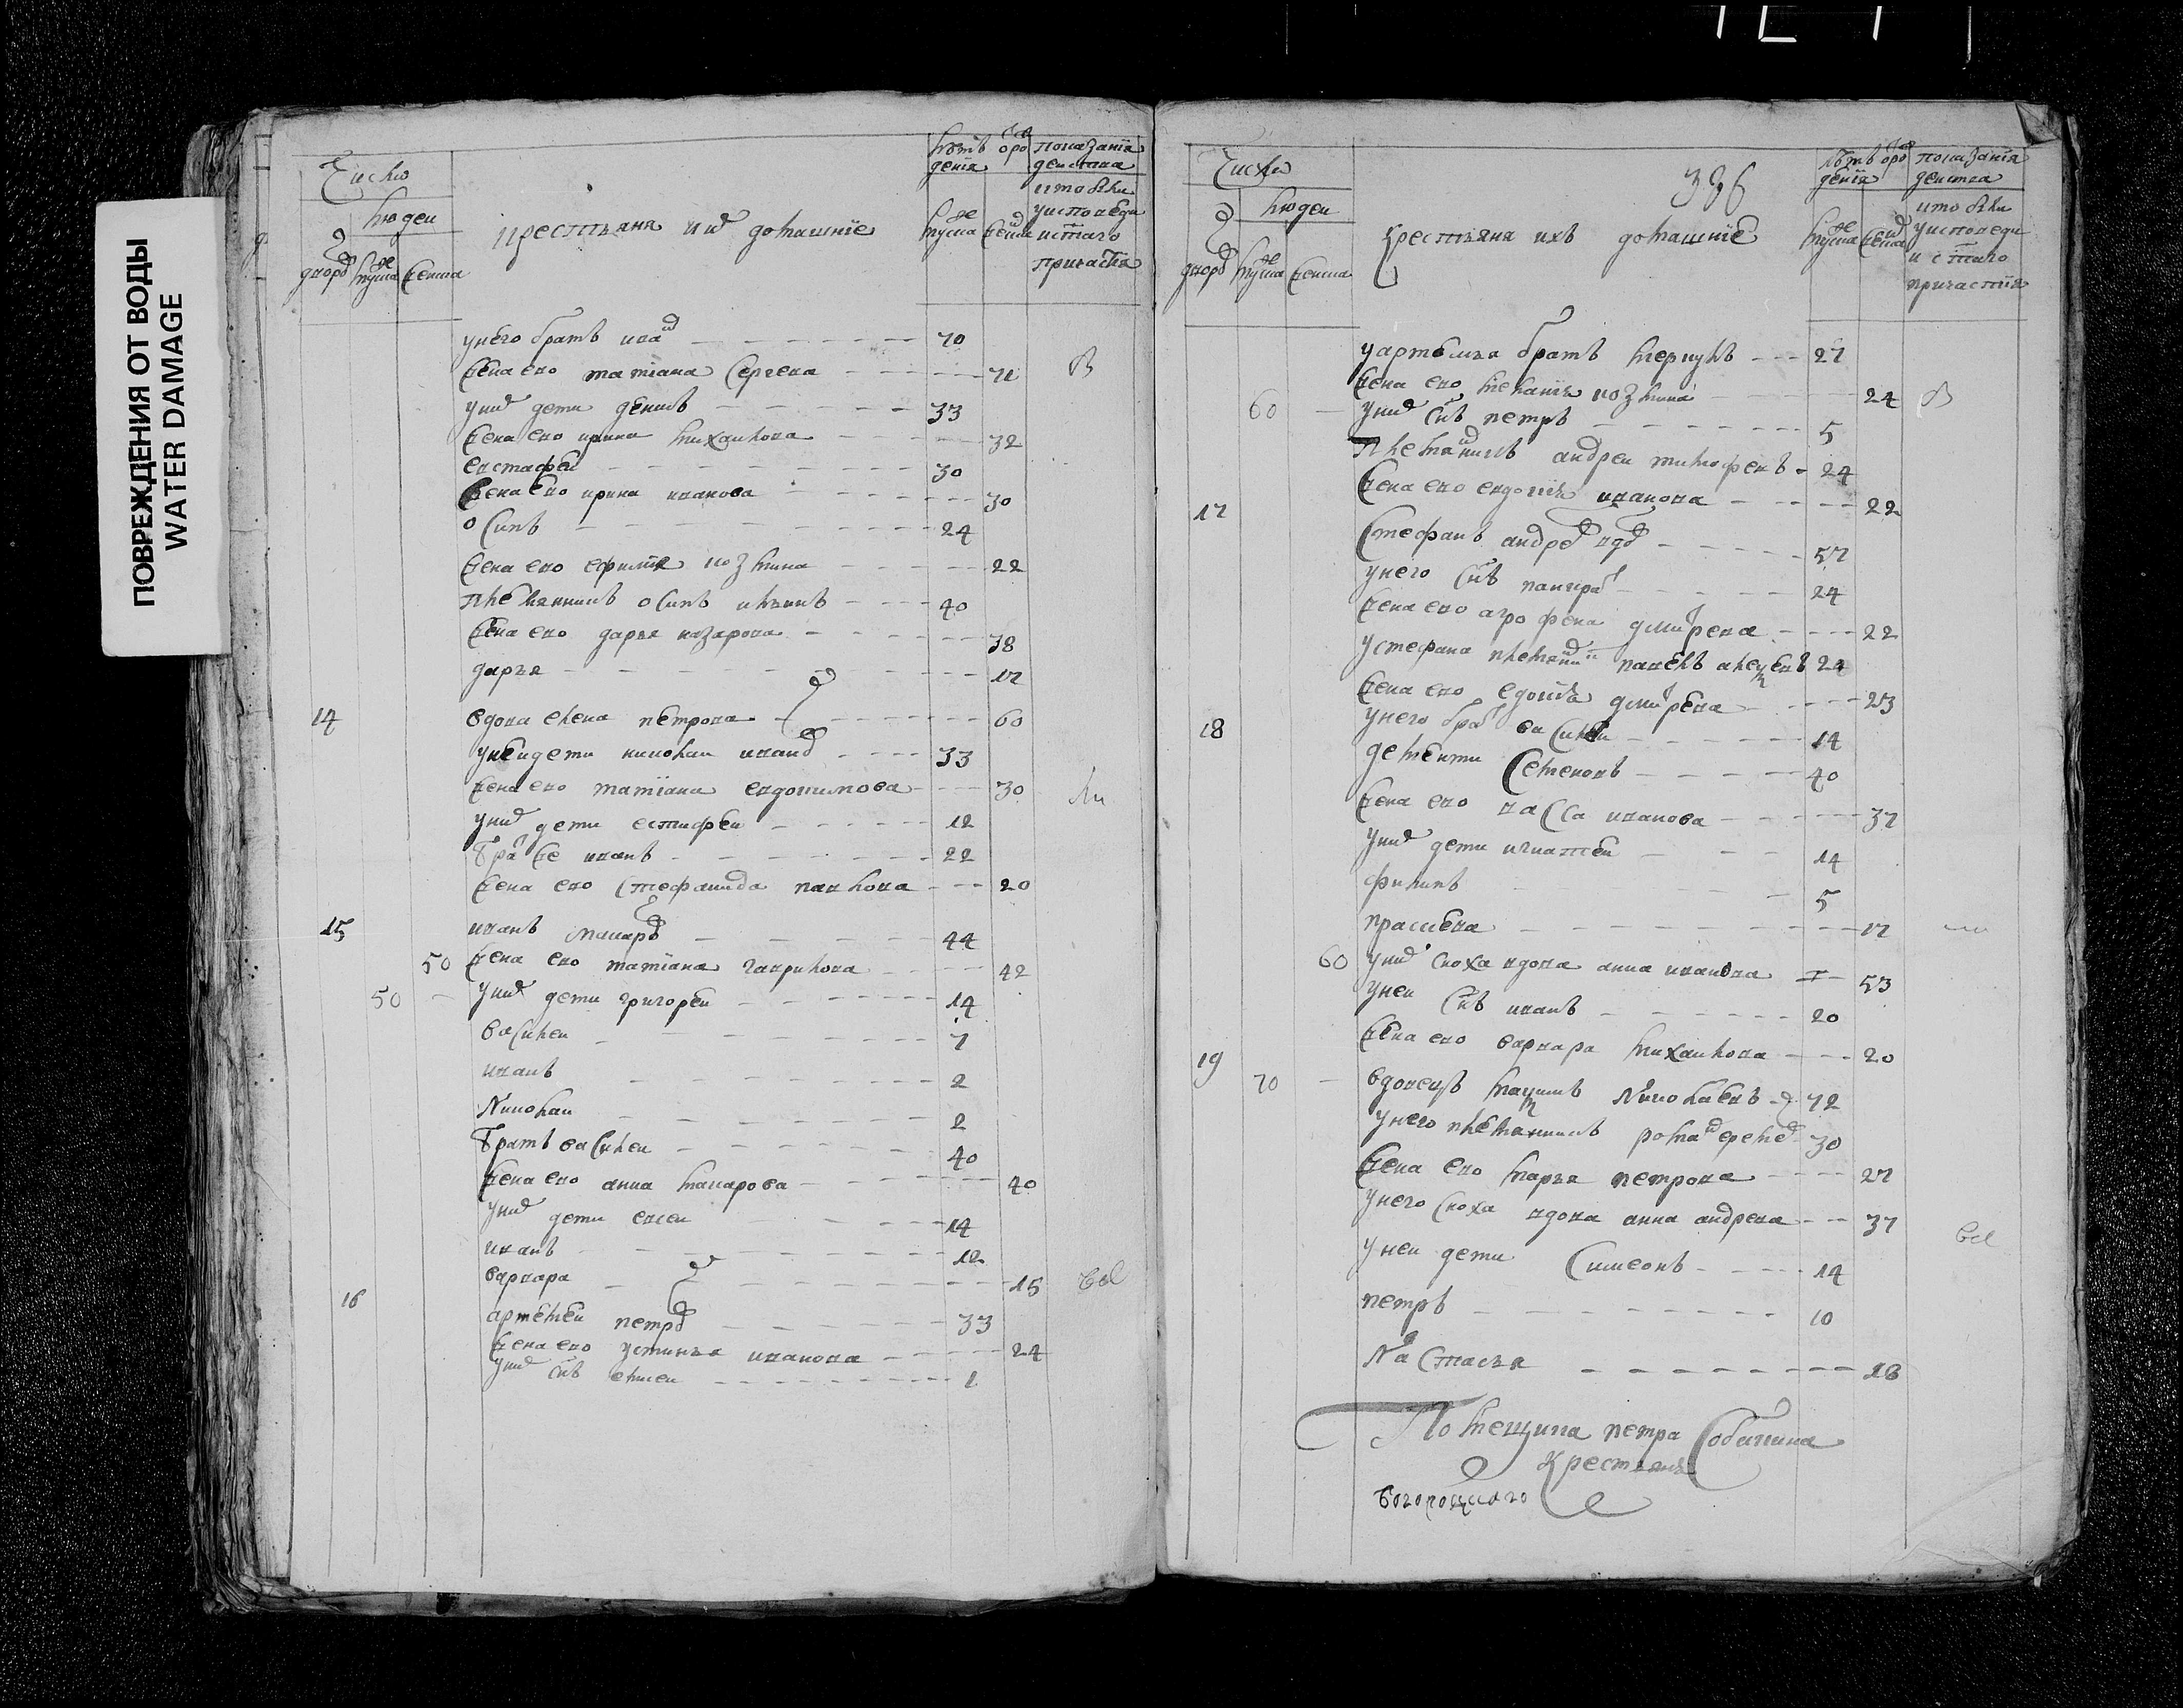 ПОВРЕЖДЕНИЯ ОТ ВОДЫ
WATER DAMAGE
Число
людеи
дворо
мужеска
женска
крестьяня их домашние
лѣтъ
от рождения
мужеска
женска
показания
действа
кто были
у исповеди
и святаго
причастия
у него братъ иван 70
жена ево татиана сергеева 70
у них дети денисъ 33
жена ево ирина михаилова 32
евстафеи 30
жена ево ирина иванова 30
осипъ 24
жена ево ефимия козмина 22
племянникъ осипъ 40
жена ево дарья назарова 38
дарья 17
14 вдова елена петрова 60
у неи дети николаи иванов 33
жена ево татиана евдокимова 30
у них дети естифеи 12
брат же иванъ 22
жена ево стефанида павлова 20
15 иванъ макаров 44
50 жена ево татиана гаврилова 42
50 у них дети григореи 14
василеи 7
иванъ 2
николаи 2
братъ василеи 40
жена ево анна макарова 40
у них дети 14
иванъ 12
варвара 15
16 артемеи петров 33
жена ево устинья иванова 24
у них снъ 1
Число
людеи
дворо
мужеска
женска
336
крестьяня ихъ домашние
лѣтъ
от рождения
мужеска
женска
показания
действа
кто были
у исповеди
и святаго
причастия
у артемья братъ 27
жена ево мелания козмина 24
60 у них снъ петръ 5
племянникъ андреи тимофеевъ 24
жена ево евдокия иванова 22
17 стефанъ андреев вдов 57
у него снъ панкрат 24
жена ево агрофена дмитрева 22
у стефана племянник павелъ 24
жена ево едокия дмитрева 23
у него брат василеи 14
18 дементи семеновъ 40
жена ево васса иванова 37
у них дети игнатеи 14
филипъ 5
прасковя 17
60 у них сноха вдова анна иванова 53
у неи снъ иванъ 20
жена ево варвара михаилова 20
19 70 вдовецъ николаевъ 72
у него племянникъ роман еремеев 30
жена ево марья петрова 27
у него сноха вдова анна андрева 37
у неи дети симеонъ 14
петръ 10
настасья 18
Помещика петра собакина
крестьяня
богороцкаго